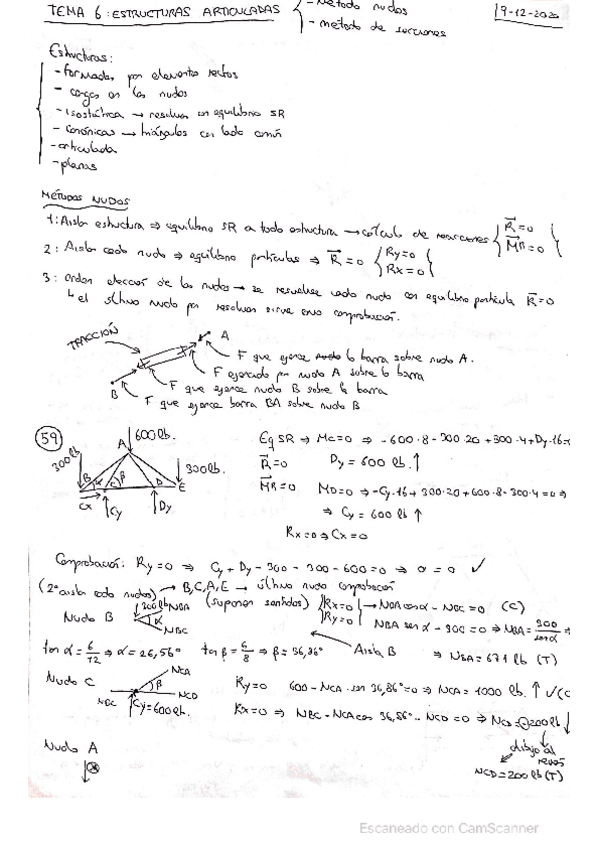 TEMA 6: ESTRUCTURAS ARTICULADAS { - Método nudos
- método de secciones
19-12-2020
Estructuras:
- formadas por elementos rectos
- cargas en los nudos
- isostática → resolver con equilibrio SR
- canónicas → triángulos con lado común
- articulada
- planas
MÉTODOS NUDOS
1: Aislar estructura ⇒ equilibrio SR a toda estructura → cálculo de reacciones { R = 0
MR = 0
2: Aislar cada nudo ⇒ equilibrio partículas ⇒ R = 0 { Ry = 0
Rx = 0
3: orden elección de los nudos → se resuelve cada nudo con equilibrio partícula R = 0
↳ el último nudo por resolver sirve como comprobación.
TRACCIÓN
A
F que ejerce nudo la barra sobre nudo A.
F ejercida por nudo A sobre la barra
B
F que ejerce nudo B sobre la barra
F que ejerce barra BA sobre nudo B
59
A 600 lb.
300 lb
300 lb.
B α C β D E
Cx Cy Dy
Eq SR ⇒ Mc=0 ⇒ -600·8-300·20+300·4+Dy·16=
R=0 Dy = 600 lb. ↑
MR=0 MD=0 ⇒ -Cy·16+300·20+600·8-300·4=0 ⇒
⇒ Cy = 600 lb ↑
Rx=0 ⇒ Cx=0
Comprobación: Ry=0 ⇒ Cy + Dy - 300 - 300 - 600 = 0 ⇒ 0 = 0 ✓
(2ª aislar cada nudos) → B, C, A, E → último nudo comprobación
Nudo B 300 lb NBA α NBC (suponer sentidos) { Rx=0 → NBA cos α - NBC = 0 (C)
Ry=0 NBA sen α - 300 = 0 ⇒ NBA = 300/sen α ⇒
tan α = 6/12 ⇒ α = 26,56° tan β = 6/8 ⇒ β = 36,86° Aisla B ⇒ NBA = 671 lb (T)
Nudo C NCA β NCD NBC Cy=600 lb.
Ry=0 600 - NCA · sen 36,86° = 0 ⇒ NCA = 1000 lb. ↑ ✓ (C
Rx=0 ⇒ NBC - NCA cos 36,86° - NCD = 0 ⇒ NCD = -200 lb
Nudo A
dibujo al revés
NCD = 200 lb (T)
Escaneado con CamScanner